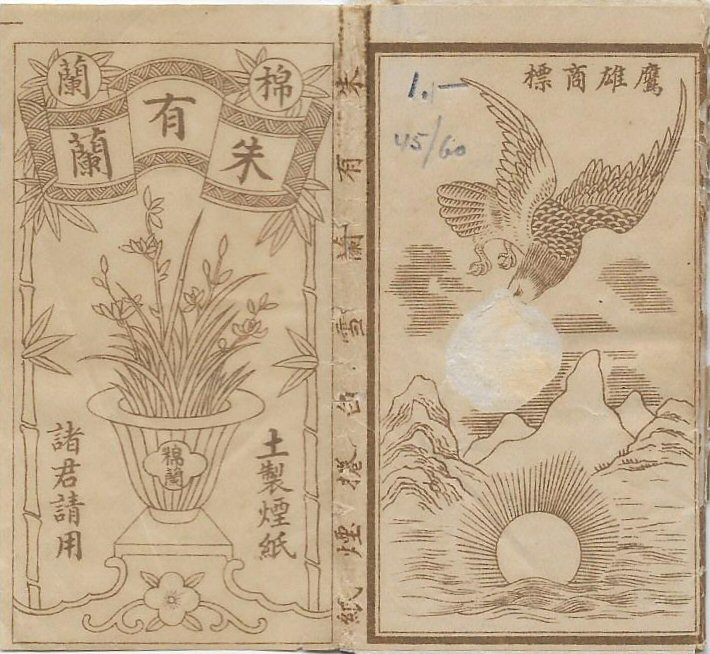 鷹雄商標
1.—
45/60
朱有蘭雪白捲煙紙
棉蘭
朱有蘭
土製煙紙
棉蘭
諸君請用